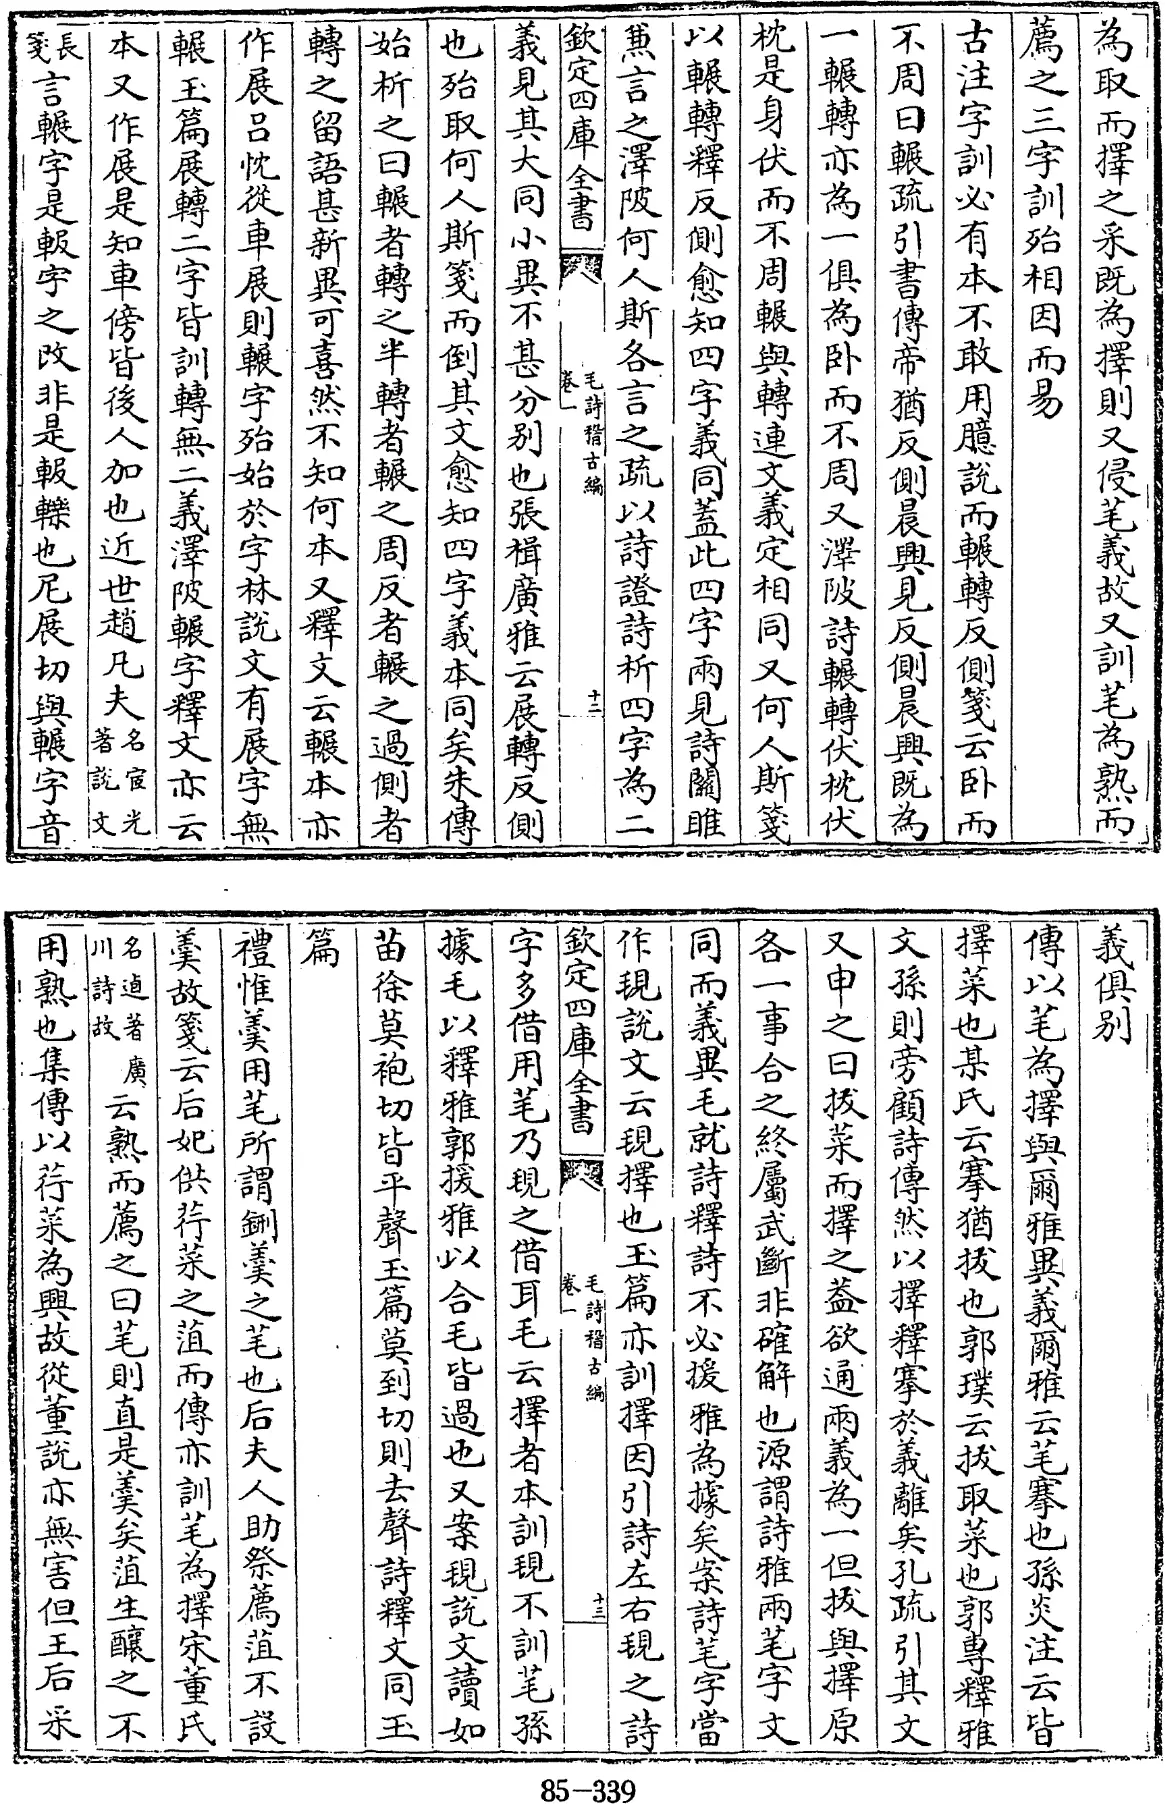 為取而擇之采既為擇則又侵芼義故又訓芼為熟而
薦之三字訓殆相因而易
古注字訓必有本不敢用臆說而輾轉反側箋云卧而
不周曰輾疏引書傳帝猶反側晨興見反側晨興既為
一輾轉亦為一俱為卧而不周又澤陂詩輾轉伏枕伏
枕是身伏而不周輾與轉連文義定相同又何人斯箋
以輾轉釋反側愈知四字義同蓋此四字兩見詩關雎
兼言之澤陂何人斯各言之疏以詩證詩析四字為二
欽定四庫全書
毛詩稽古編
卷一
十二
義見其大同小異不甚分别也張楫廣雅云展轉反側
也殆取何人斯箋而倒其文愈知四字義本同矣朱傳
始析之曰輾者轉之半轉者輾之周反者輾之過側者
轉之留語甚新異可喜然不知何本又釋文云輾本亦
作展呂忱從車展則輾字殆始於字林說文有展字無
輾玉篇展轉二字皆訓轉無二義澤陂輾字釋文亦云
本又作展是知車傍皆後人加也近世趙凡夫名宧光著說文
長箋言輾字是報字之改非是報轢也尼展切與輾字音
義俱别
傳以芼為擇與爾雅異義爾雅云芼搴也孫炎注云皆
擇菜也某氏云搴猶拔也郭璞云拔取菜也郭專釋雅
文孫則旁顧詩傳然以擇釋搴於義離矣孔疏引其文
又申之曰拔菜而擇之葢欲通兩義為一但拔與擇原
各一事合之終屬武斷非確解也源謂詩雅兩芼字文
同而義異毛就詩釋詩不必援雅為據矣案詩芼字當
作覒說文云覒擇也玉篇亦訓擇因引詩左右覒之詩
欽定四庫全書
毛詩稽古編
卷一
十三
字多借用芼乃覒之借耳毛云擇者本訓覒不訓芼孫
據毛以釋雅郭援雅以合毛皆過也又案覒說文讀如
苗徐莫袍切皆平聲玉篇莫到切則去聲詩釋文同玉
篇
禮惟羹用芼所謂鉶羹之芼也后夫人助祭薦菹不設
羹故箋云后妃供荇菜之菹而傳亦訓芼為擇宋董氏
名逌著廣川詩故云熟而薦之曰芼則直是羹矣菹生釀之不
用熟也集傳以荇菜為興故從董說亦無害但王后采
85-339